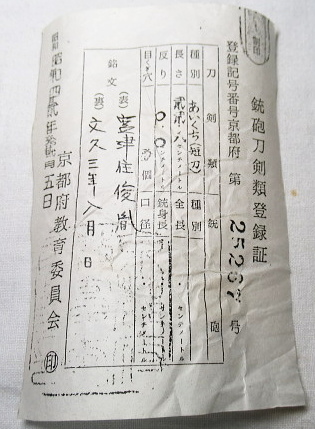 銃砲刀剣類登録証
登録記号番号京都府 第 25267 号
刀剣類 銃砲
種別 あいくち(短刀) 種別
長さ 弐弐.八 センチメートル 全長 センチメートル
反り 〇.〇 センチメートル 銃身長 センチメートル
目くぎ穴 個 口径 センチメートル
銘文 (表) 宮津住俊胤
(裏) 文久三年八月 日
五日
京都府教育委員会 印